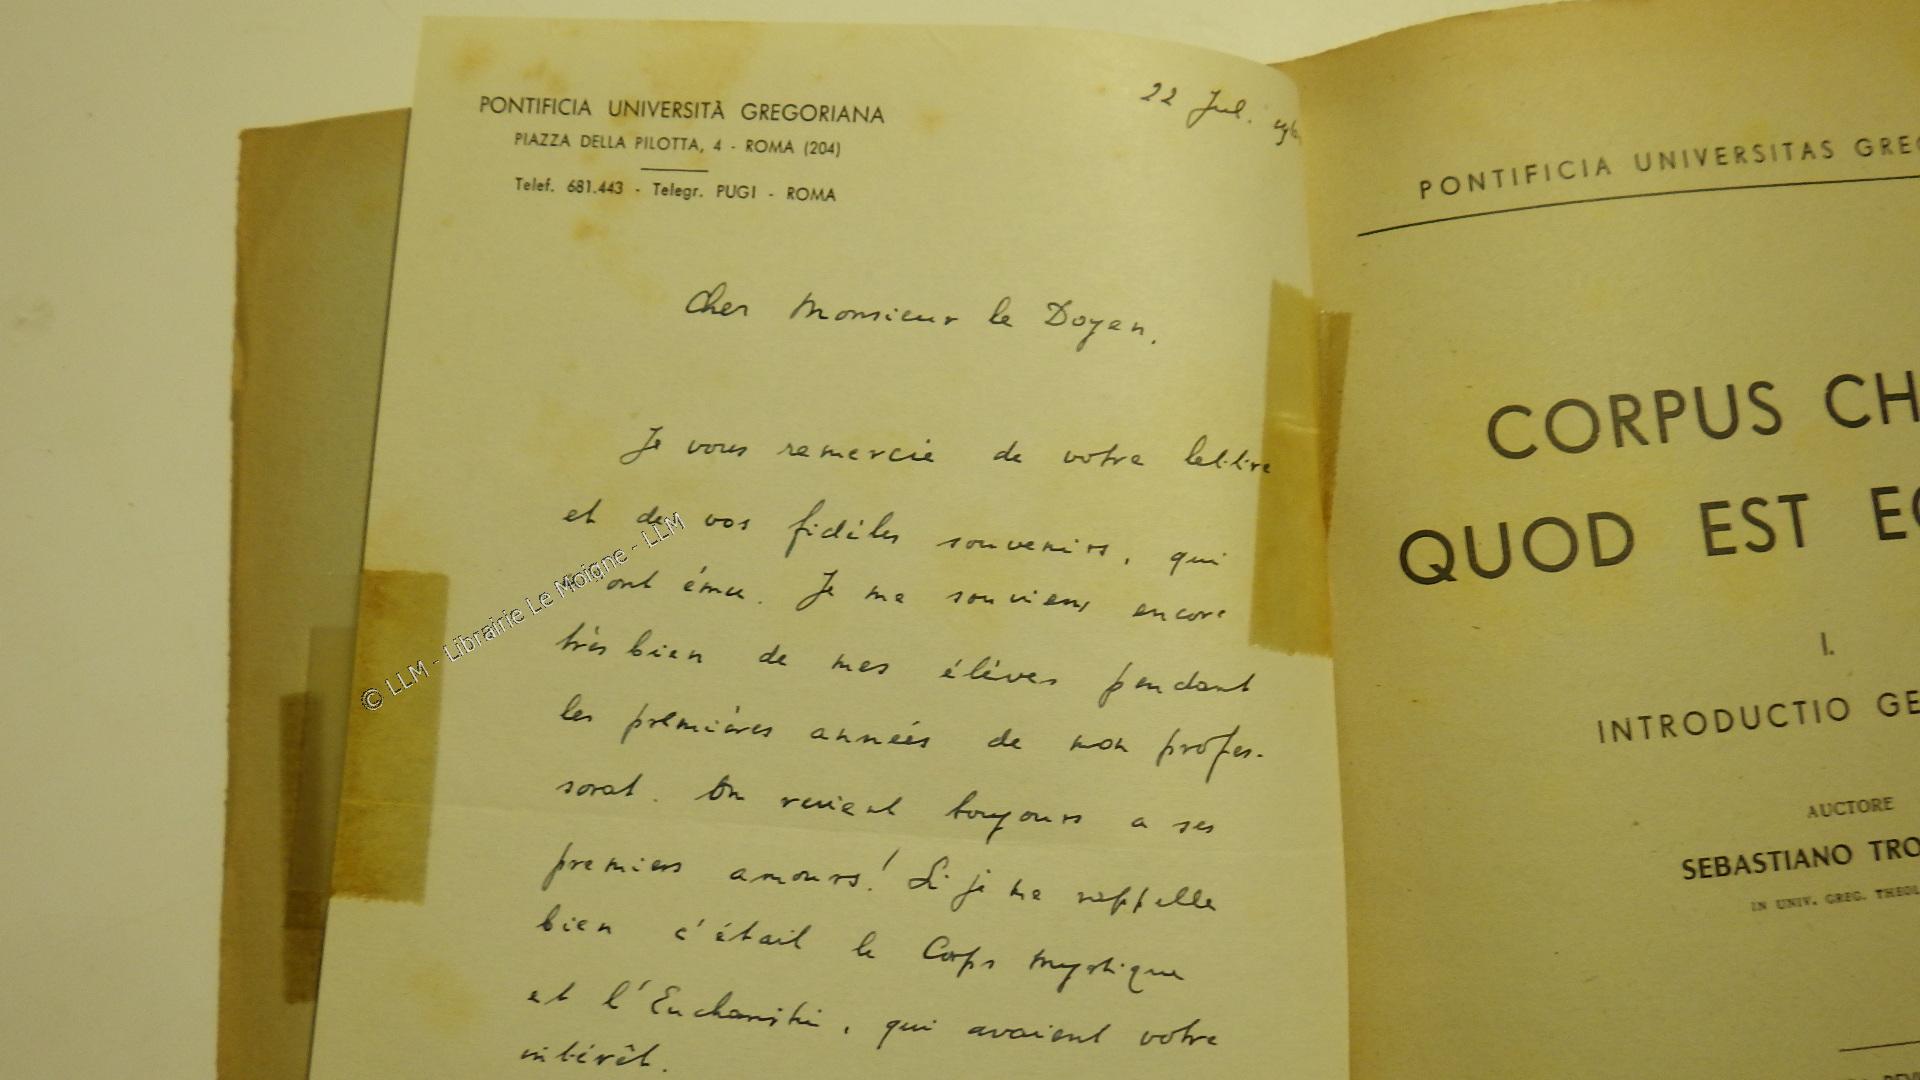 PONTIFICIA UNIVERSITÀ GREGORIANA
PIAZZA DELLA PILOTTA, 4 - ROMA (204)
Telef. 681.443 - Telegr. PUGI - ROMA
22 Jul.
Cher Monsieur le Doyen,
Je vous remercie de votre lettre
et de vos fidèles souvenirs, qui
ont ému. Je me souviens encore
très bien de mes élèves pendant
les premières années de mon profes-
sorat. On revient toujours a ses
premiers amours! Si je me rappelle
bien c'était le Corps mystique
et l'Eucharistie, qui avaient votre
intérêt.
© LLM - Librairie Le Moigne - LLM
PONTIFICIA UNIVERSITAS GREG
CORPUS CH
QUOD EST EC
I.
INTRODUCTIO GE
AUCTORE
SEBASTIANO TRO
IN UNIV. GREG. THEOL